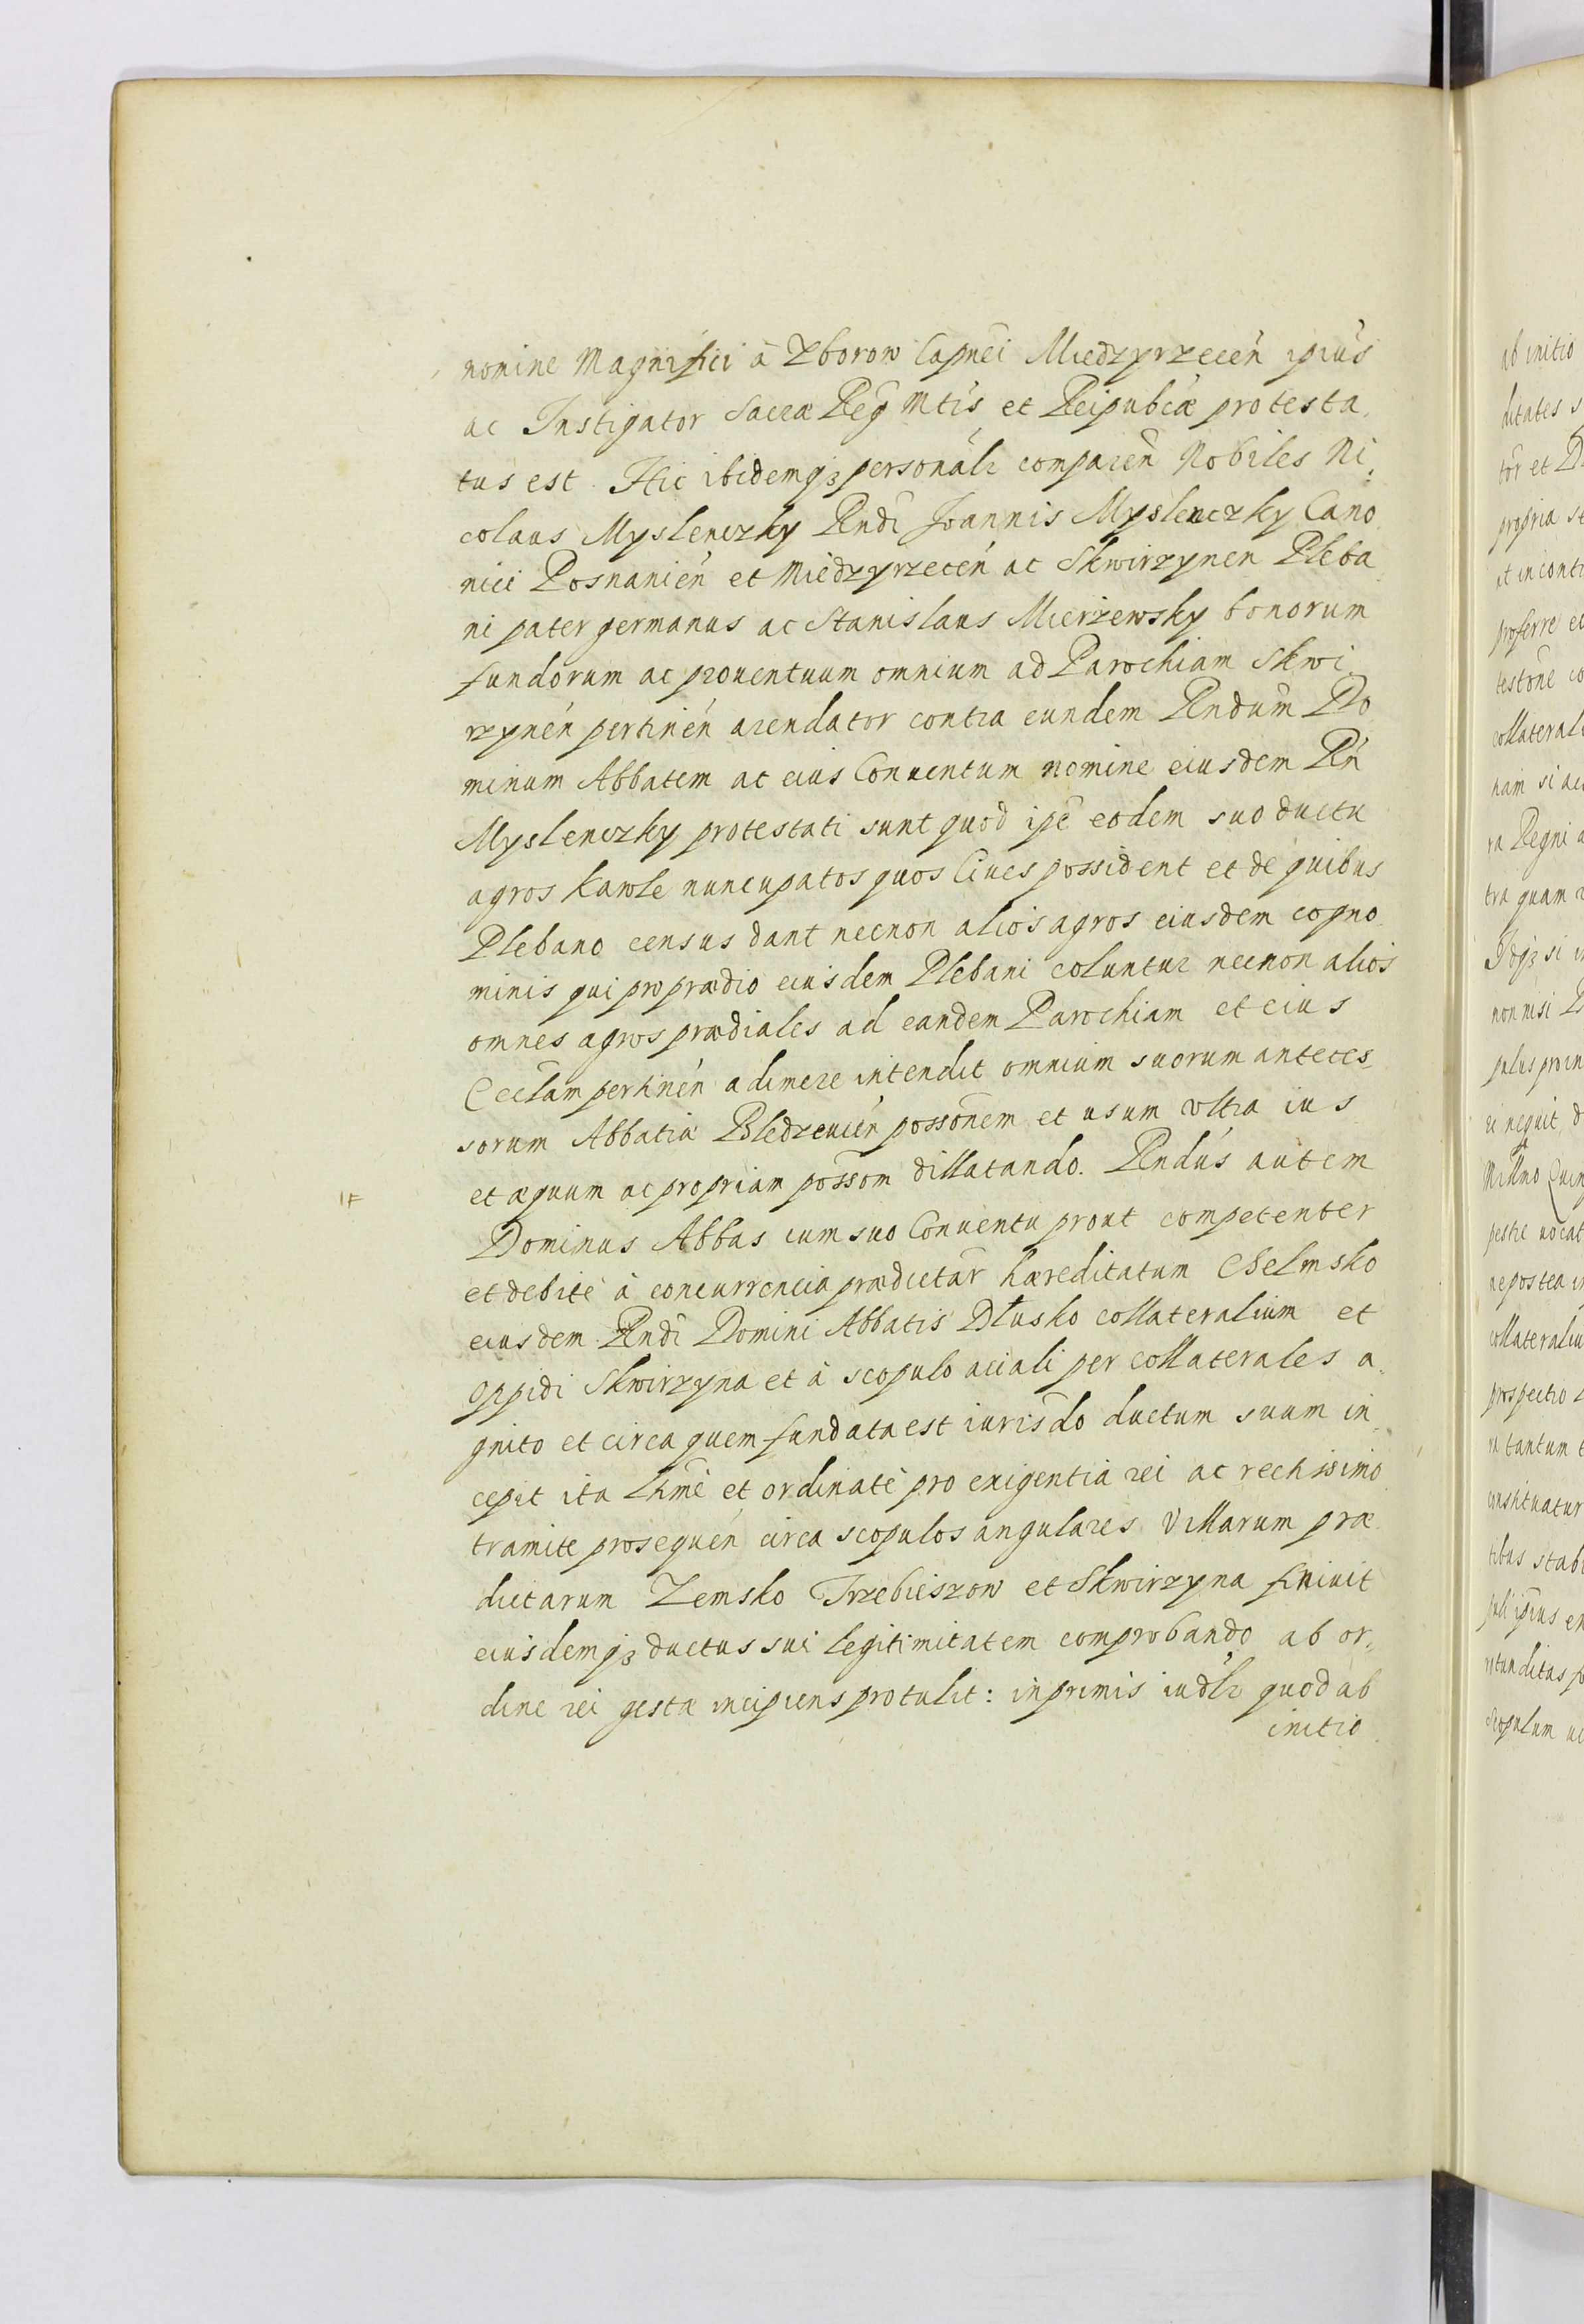 nomine Magnifici à Zborow Capnei Miedzyrzecen̄ ipiūs
ac Instigator Sacræ Reg̃ Mtis et Reipublcæ protesta,
tus est. Hic ibidemqꝫ personalr comparen̄ Nobiles Ni,
colaus Myslenczky Rndi Joannis Myslenczky Cano
nici Posnanien̄ et Miedzyrzecen̄ ac Skwirzynen Pleba
ni pater germanus ac Stanislaus Mierzewsky bonorum
fundorum ac prouentuum omnium ad Parochiam Skwi,
rzynen̄ pertinen̄ arendator contra eundem Rndum Do
minum Abbatem ac eius Conuentum nomine eiusdem Rn̄
Myslenczky protestati sunt quod ipe eodem suo ductu
agros kawle nuncupatos quos Ciues possident et de quibus
Plebano census dant necnon alios agros eiusdem cogno
minis qui pro prædio eiusdem Plebani coluntur necnon alios
omnes agros prædiales ad eandem Parochiam et eius
Ecclam pertinen̄ adimere intendit omnium suorum anteces,
sorum Abbatia Bledzeuien̄ possonem et usum vltra ius
et æquum ac propriam possom dillatando. Rndus autem
Dominus Abbas cum suo Conuentu prout competenter
et debitè à concurrencia prædictar̄ hæreditatum Chelmsko
eiusdem Rndi Domini Abbatis Dłusko collateralium et
oppidi Skwirzyna et à scopulo aciali per collaterales a,
gnito et circa quem fundata est iurisdo ductum suum in,
cepit ita Lh̄mè et ordinatè pro exigentia rei ac rectissimo
tramite prosequen̄ circa scopulos angulares Villarum præ,
dictarum Zemsko Trzebieszow et Skwirzyna finiuit
eiusdemqꝫ ductus sui legitimitatem comprobando ab or,
dine rei gestæ incipiens protulit: inprimis iudlr quod ab
initio
ab initio
ditates s
tōr et D
propria se
et in cont
proferre e
testōne co
collateral
nam si ac
ra Regni a
tra quam
Idqꝫ si i
non nisi
pulus pro in
ri nequit, d
Millmo Quin
pestre uocat
ne postea in
collateraliu
prospectio
ra tantum t
constituatur
tibus stab
puli ipius e
rotunditas p
scopulum ac